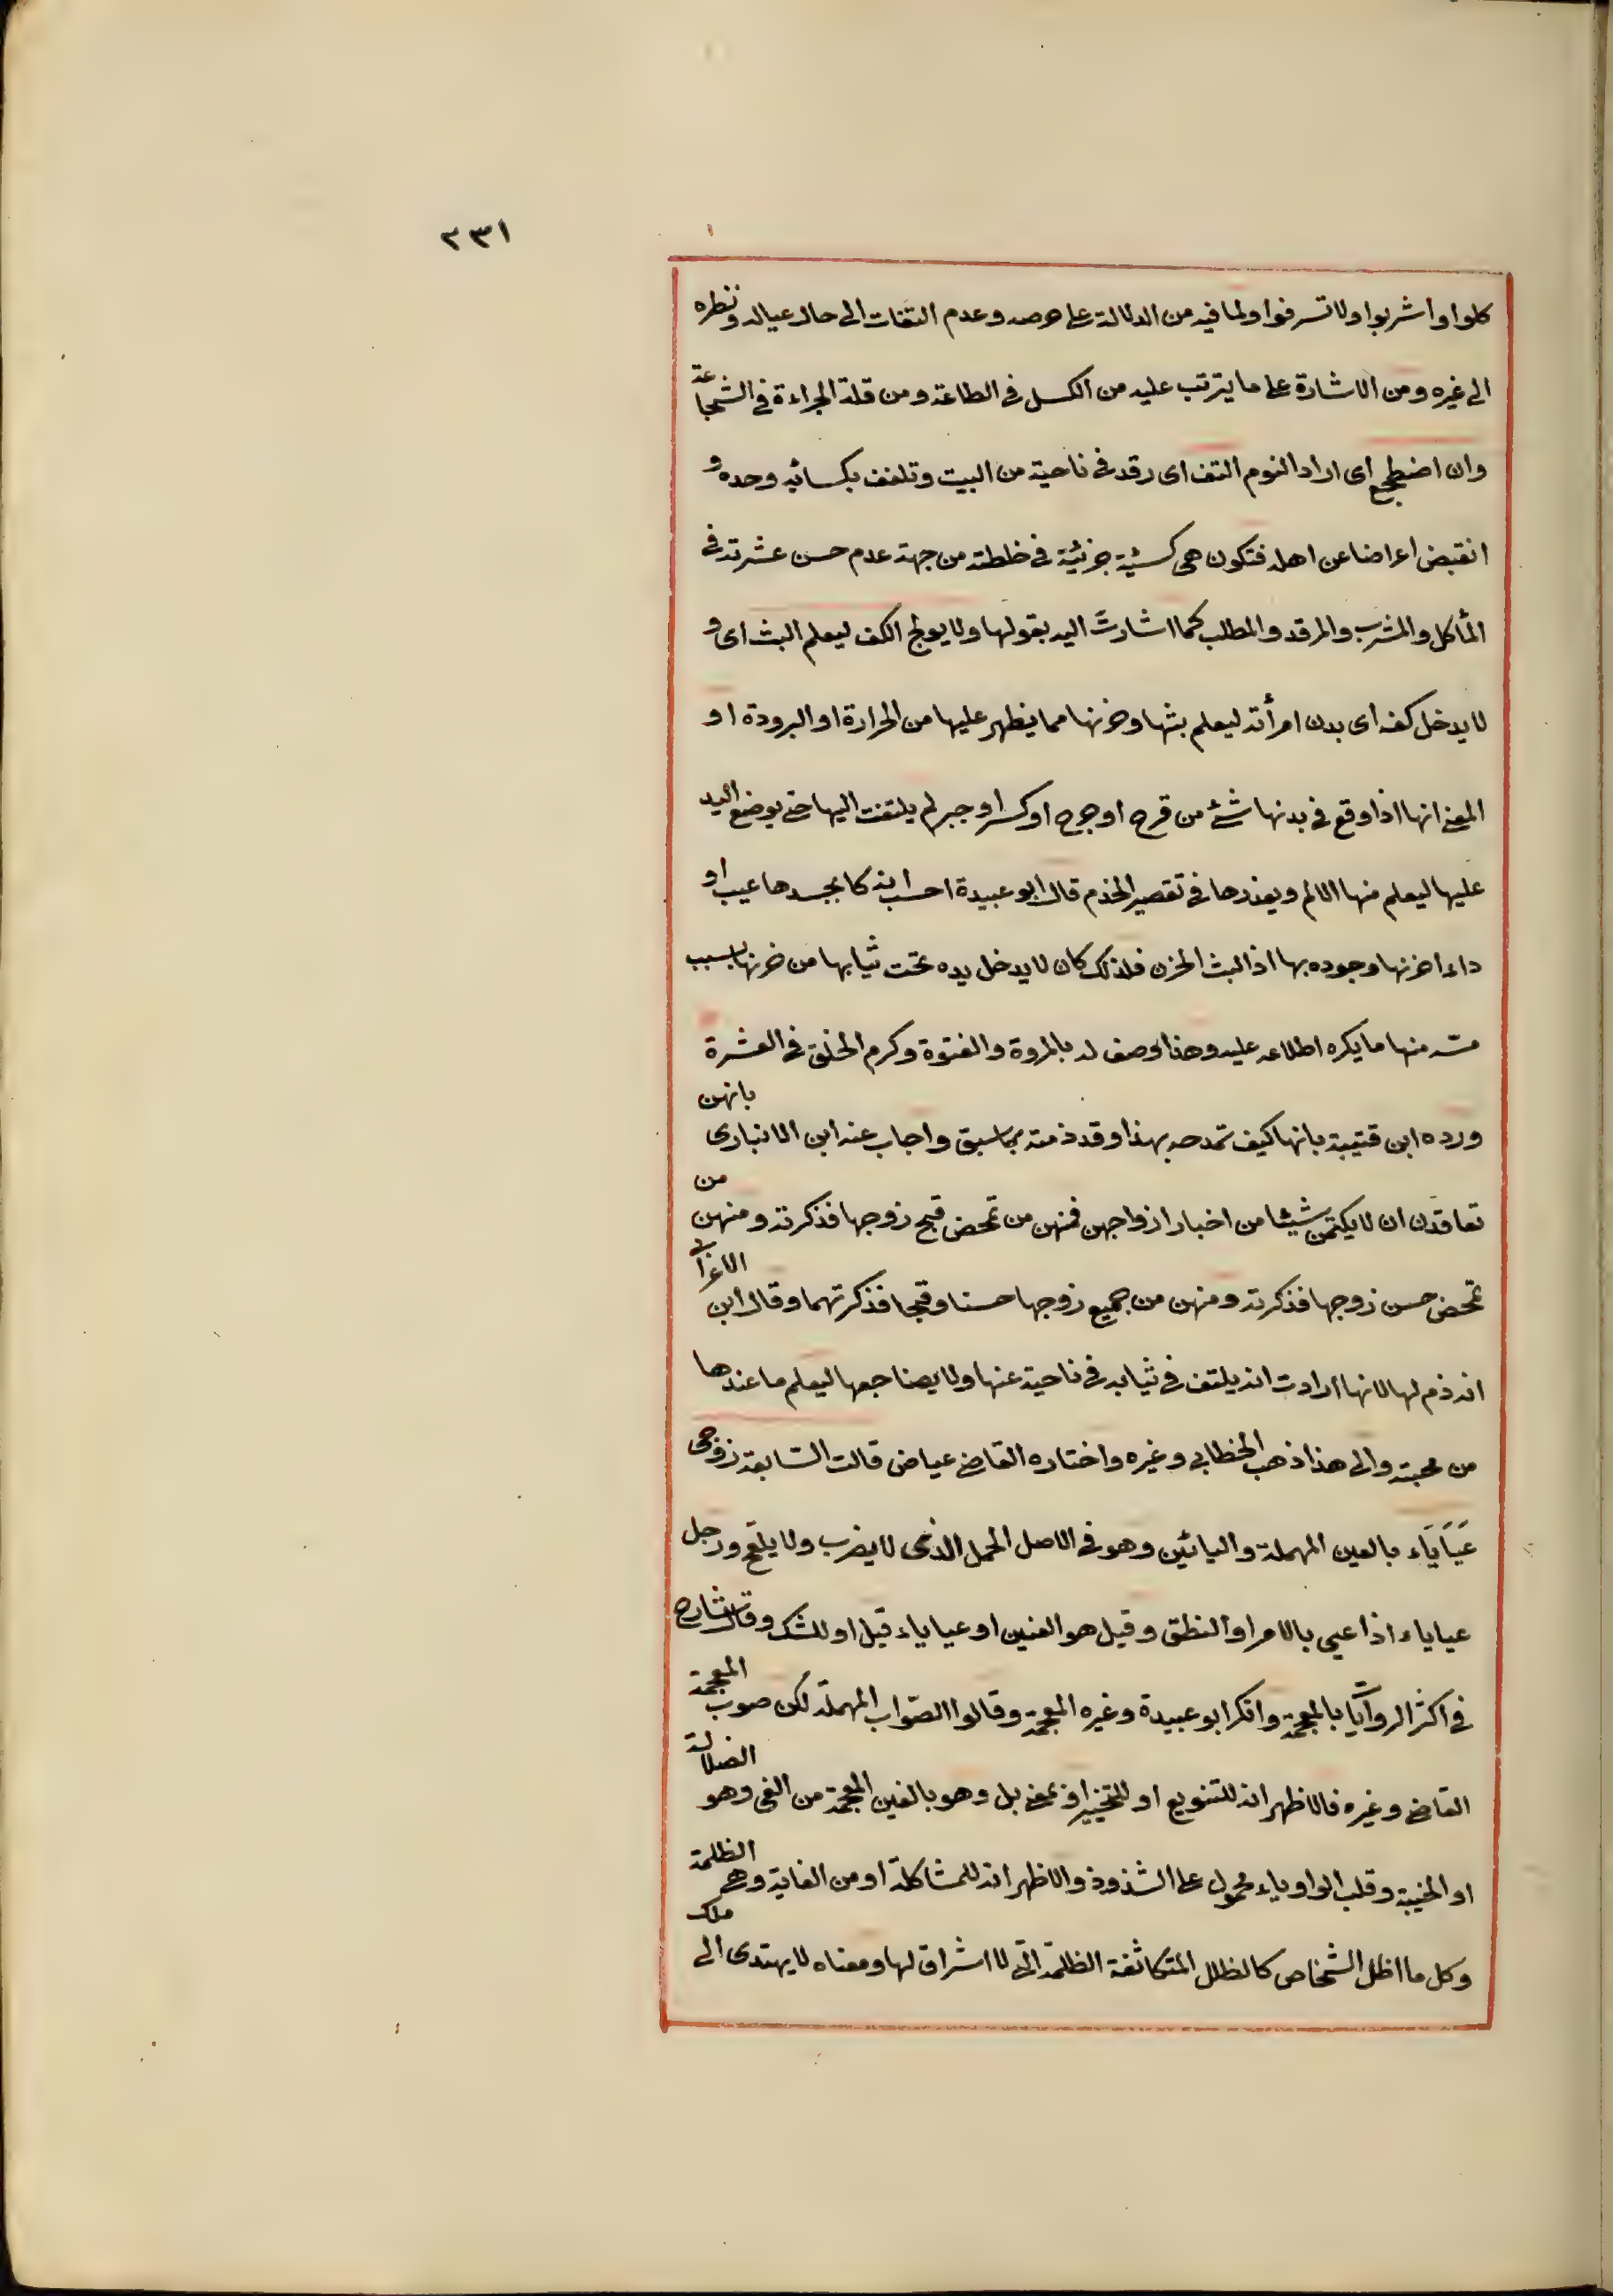 ٢٣١
كلوا واشربوا ولا تسرفوا ولما فيه من الدلالة على حرصه وعدم التفات الى حال عياله ونظره
الى غيره ومن الاشارة على ما يترتب عليه من الكسل فى الطاعة ومن قلة الجراءة فى الشجاعة
وان اضطجع اى اراد النوم التف اى رقد فى ناحية من البيت وتلفف بكسائه وحده و
انقبض اعراضا عن اهله فتكون هى كسئية حزنية فى خلطته من جهة عدم حسن عشرته فى
المأكل والمشرب والمرقد والمطلب كما اشارت اليه بقولها ولا يولج الكف ليعلم البث اى و
لا يدخل كفه اى بدن امرأته ليعلم بثها وحزنها مما يظهر عليها من الحرارة او البرودة او
المعنى انها اذا وقع فى بدنها شئ من قرح او جرح او كسر او جبر لم يلتفت اليها حتى يوضع اليد
عليها ليعلم منها الالم ويعذرها فى تقصير الخدم قال ابو عبيدة احسب انه كا بجسدها عيب او
داء احزنها وجوده بها اذ البث الحزن فلذلك كان لا يدخل يده تحت ثيابها من حزنها بسبب
مسّه منها ما يكره اطلاعه عليه وهذا وصف له بالمروة والفتوة وكرم الخلق فى العشرة
ورده ابن قتيبة بانها كيف تمدحه بهذا وقد ذمته بما سبق واجاب عنه ابن الانبارى بانهن
تعاقدن ان لا يكتمن شيئا من اخبار ازواجهن فمنهن من تمحض قبح زوجها فذكرته ومنهن من
تمحض حسن زوجها فذكرته ومنهن من جميع زوجها حسنا وقبحا فذكرتهما وقال ابن الاعرابى
انه ذم لها لانها ارادت انه يلتف فى ثيابه فى ناحية عنها ولا يضاجعها ليعلم ما عندها
من محبته والى هذا ذهب الخطابى وغيره واختاره القاضى عياض قالت السابعة زوجى
عَيَايَاء بالعين المهملة واليائين وهو فى الاصل الجمل الذى لا يضرب ولا يلقح ورجل
عياياء اذا عيى بالامر او النطق وقيل هو العنين او عياياء قيل او للشك وقال شارح
فى اكثر الروايات بالمعجمة وانكر ابو عبيدة وغيره المعجمة وقالوا الصّواب المهملة لكن صوب المعجمة
القاضى وغيره فالاظهر انه للتنويع او للتخيير او بمعنى بل وهو بالغين المعجمة من الغى وهو الضلالة
او الخيبة وقلب الواو ياء محمول على الشذوذ والاظهر انه للمشاكلة او من الغاية وهى الظلمة
وكل ما اظل الشخاص كالظلل المتكاثفة الظلمة التى لا اشراق لها ومعناه لا يهتدى الى ملك